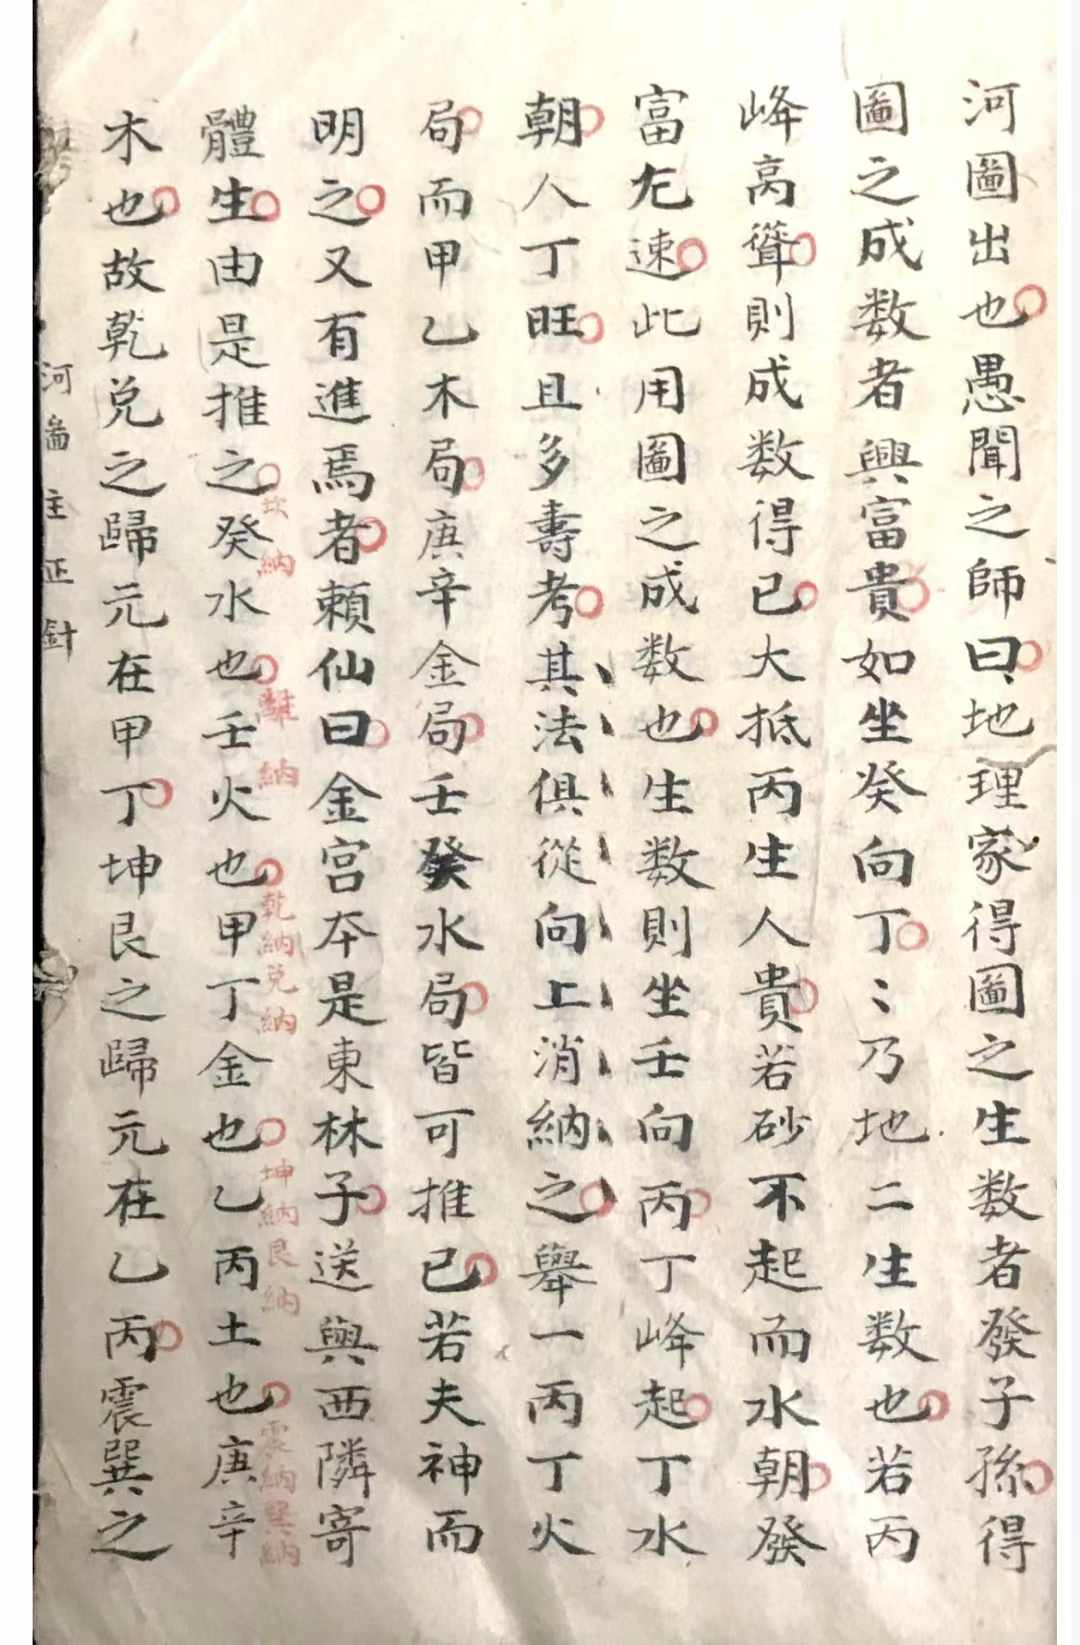 河圖出也愚聞之師曰地理家得圖之生数者發子孫得
圖之成数者興富貴如坐癸向丁〻乃地二生数也若丙
峰高聳則成数得已大抵丙生人貴若砂不起而水朝發
富尤速此用圖之成数也生数則坐壬向丙丁峰起丁水
朝人丁旺且多壽考其法俱從向上消納之舉一丙丁火
局而甲乙木局庚辛金局壬癸水局皆可推已若夫神而
明之又有進焉者頼仙曰金宫夲是東林子送與西隣寄
體生由是推之癸水也壬火也甲丁金也乙丙土也庚辛
坎納
離納
乾納兑納
坤納艮納
震納巽納
木也故乾兑之歸元在甲丁坤艮之歸元在乙丙震巽之
河啚主正針